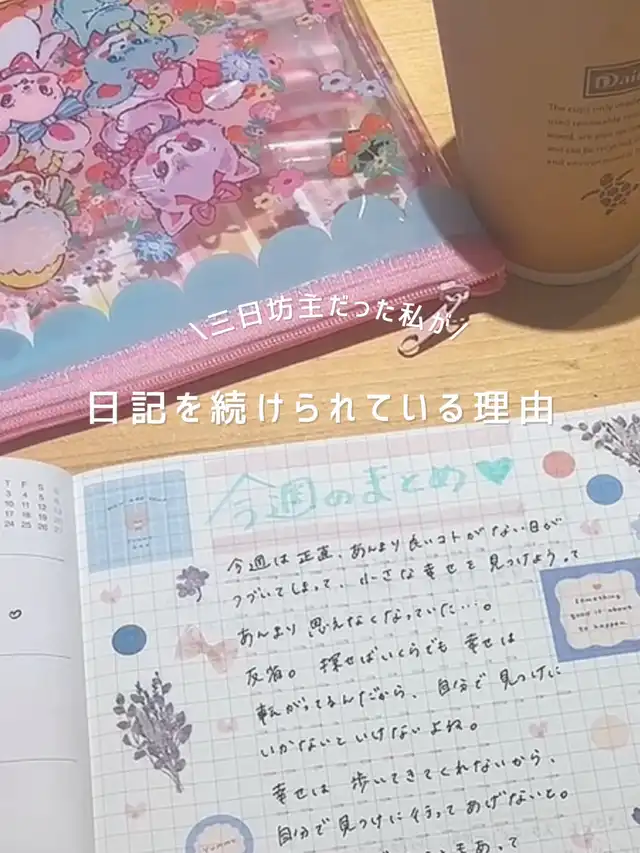 Dai
The cup only
used renewable
wood, are pla
and can be recycled
and environment
\三日坊主だった私が/
日記を続けられている理由
T F S S
3 4 5 6
10 11 12 13
17 18 19 20
24 25 26 27
今週のまとめ
今週は正直、あんまり良いコトがない日が
つづいてしまって、小さな幸せを見つけようって
あんまり思えなくなっていた…。
反省。探せばいくらでも幸せは
転がってるんだから、自分で見つけに
いかないといけないよね。
幸せは歩いてきてくれないから、
自分で見つけに行ってあげないと。
something
good is about
to happen.
Yummy